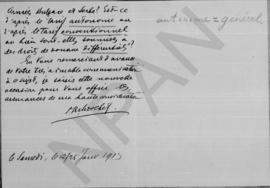 Armée Bulgare et Serbe? Est-ce
d'après le Tarif autonome ou
d'après le Tarif conventionnel
ou bien sont-elles soumises à
des droits de douane différentiels?
En vous remerciant d'avance
de votre très aimable communication
à ce sujet, je saisis cette nouvelle
occasion pour vous offrir les
assurances de ma haute considération
Samedi, 1913
autonome = général